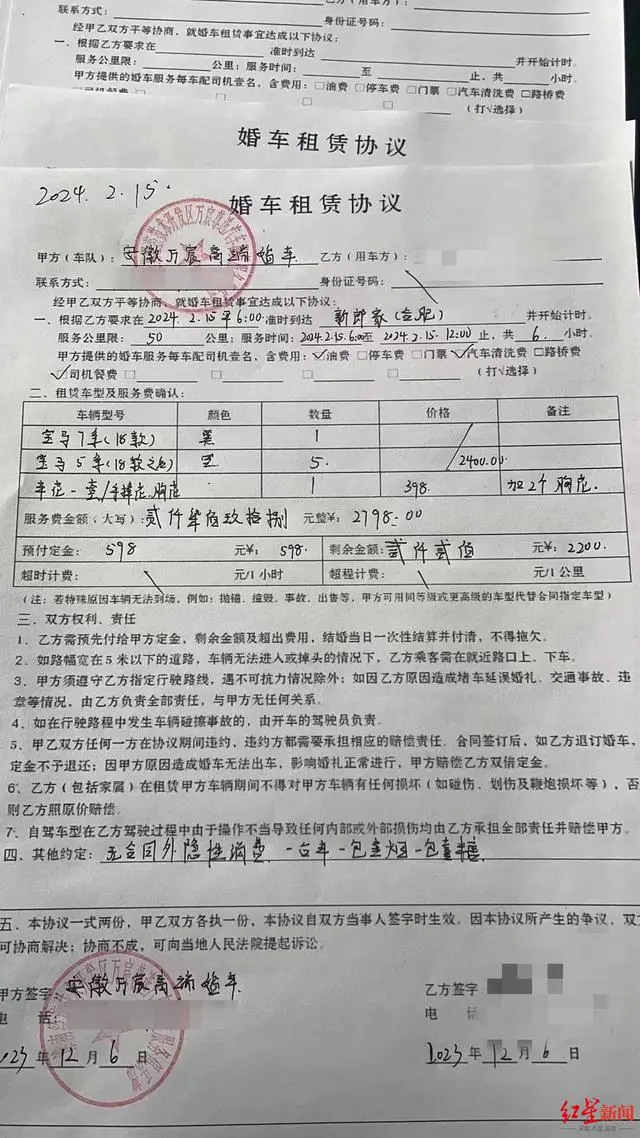 联系方式： 乙方（用车方）：
身份证号码：
经甲乙双方平等协商，就婚车租赁事宜达成以下协议：
一、根据乙方要求在 准时到达 并开始计时。
服务公里限： 公里；服务时间： 至 止，共 小时。
甲方提供的婚车服务每车配司机壹名，含费用：□油费 □停车费 □门票 □汽车清洗费 □路桥费
□司机餐费 □ □ □ □ （打√选择）
婚车租赁协议
2024. 2. 15.
婚车租赁协议
甲方（车队）：安徽万宸高端婚车 乙方（用车方）：
联系方式： 身份证号码：
经甲乙双方平等协商，就婚车租赁事宜达成以下协议：
一、根据乙方要求在2024. 2.15早6:00准时到达 新郎家（合肥） 并开始计时。
服务公里限： 50 公里；服务时间：2024.2.15.6:00至 2024.2.15.12:00 止，共 6. 小时。
甲方提供的婚车服务每车配司机壹名，含费用：☑油费 □停车费 □门票 ☑汽车清洗费 □路桥费
☑司机餐费 □ □ □ □ （打√选择）
二、租赁车型及服务费确认：
车辆型号 颜色 数量 价格 备注
宝马7系（18款） 黑 1
宝马5系（18款之后） 黑 5. 2400.00
车花一套/手捧花.胸花 1 398. 加2个胸花.
服务费金额（大写）：贰仟柒佰玖拾捌 元整¥：2798.00
预付定金： 598 元¥： 598. 剩余金额：贰仟贰佰 元¥：2200.
超时计费： 元/1小时 超程计费： 元/1公里
（注：若特殊原因车辆无法到场，例如：抛锚、撞毁、事故、出售等，甲方可用同等级或更高级的车型代替合同指定车型）
三、双方权利、责任
1、乙方需预先付给甲方定金，剩余金额及超出费用，结婚当日一次性结算并付清，不得拖欠。
2、如路幅宽在5米以下的道路，车辆无法进入或掉头的情况下，乙方乘客需在就近路口上、下车。
3、甲方须遵守乙方指定行驶路线，遇不可抗力情况除外；如因乙方原因造成堵车延误婚礼、交通事故、违
章等情况，由乙方负责全部责任，与甲方无任何关系。
4、如在行驶路程中发生车辆碰擦事故的，由开车的驾驶员负责。
5、甲乙双方任何一方在协议期间违约，违约方都需要承担相应的赔偿责任。合同签订后，如乙方退订婚车，
定金不予退还；因甲方原因造成婚车无法出车，影响婚礼正常进行，甲方赔偿乙方双倍定金。
6、乙方（包括家属）在租赁甲方车辆期间不得对甲方车辆有任何损坏（如碰伤、划伤及鞭炮损坏等），否
则乙方照原价赔偿。
7、自驾车型在乙方驾驶过程中由于操作不当导致任何内部或外部损伤均由乙方承担全部责任并赔偿甲方。
四、其他约定：无合同外隐性消费 一台车一包喜烟一包喜糖
五、本协议一式两份，甲乙双方各执一份，本协议自双方当事人签字时生效。因本协议所产生的争议，双方
可协商解决；协商不成，可向当地人民法院提起诉讼。
甲方签字：安徽万宸高端婚车 乙方签字：
电 话： 电 话：
2023 年 12 月 6 日 2023 年 12 月 6 日
红星新闻